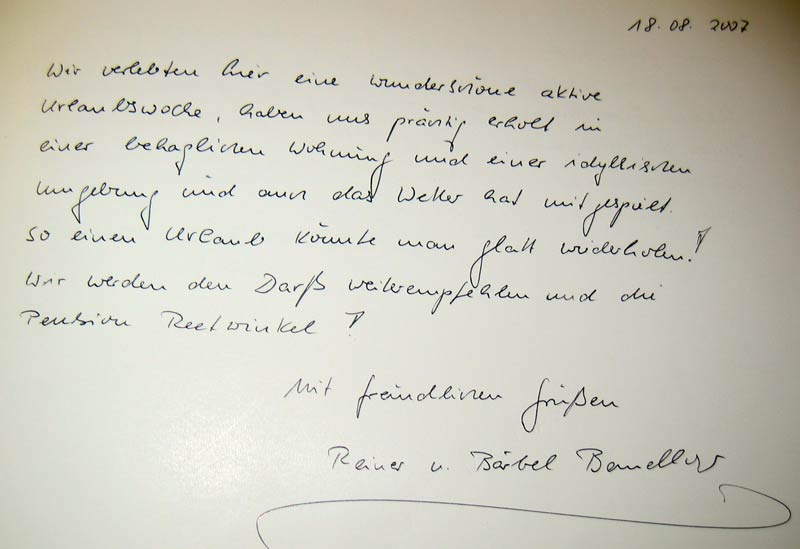 18.08.2007
Wir verlebten hier eine wunderschöne aktive
Urlaubswoche, haben uns prächtig erholt in
einer behaglichen Wohnung und einer idyllischen
Umgebung und auch das Wetter hat mitgespielt.
So einen Urlaub könnte man glatt wiederholen!
Wir werden den Darß weiterempfehlen und die
Pension Reetwinkel!
Mit freundlichen Grüßen
Reiner u. Bärbel